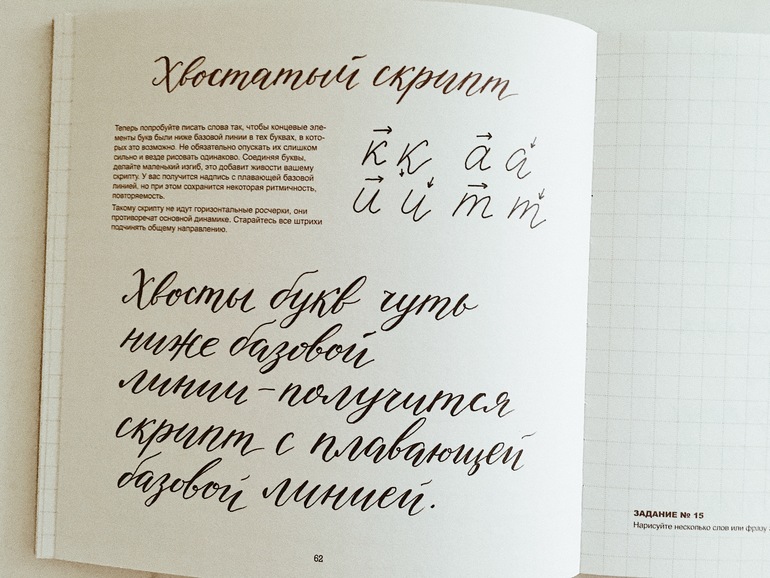 Хвостатый скрипт
Теперь попробуйте писать слова так, чтобы концевые эле-
менты букв были ниже базовой линии в тех буквах, в кото-
рых это возможно. Не обязательно опускать их слишком
сильно и везде рисовать одинаково. Соединяя буквы,
делайте маленький изгиб, это добавит живости вашему
скрипту. У вас получится надпись с плавающей базовой
линией, но при этом сохранится некоторая ритмичность,
повторяемость.
Такому скрипту не идут горизонтальные росчерки, они
противоречат основной динамике. Старайтесь все штрихи
подчинять общему направлению.
к к а а
и и т т
Хвосты букв чуть
ниже базовой
линии – получится
скрипт с плавающей
базовой линией.
62
ЗАДАНИЕ № 15
Нарисуйте несколько слов или фразу